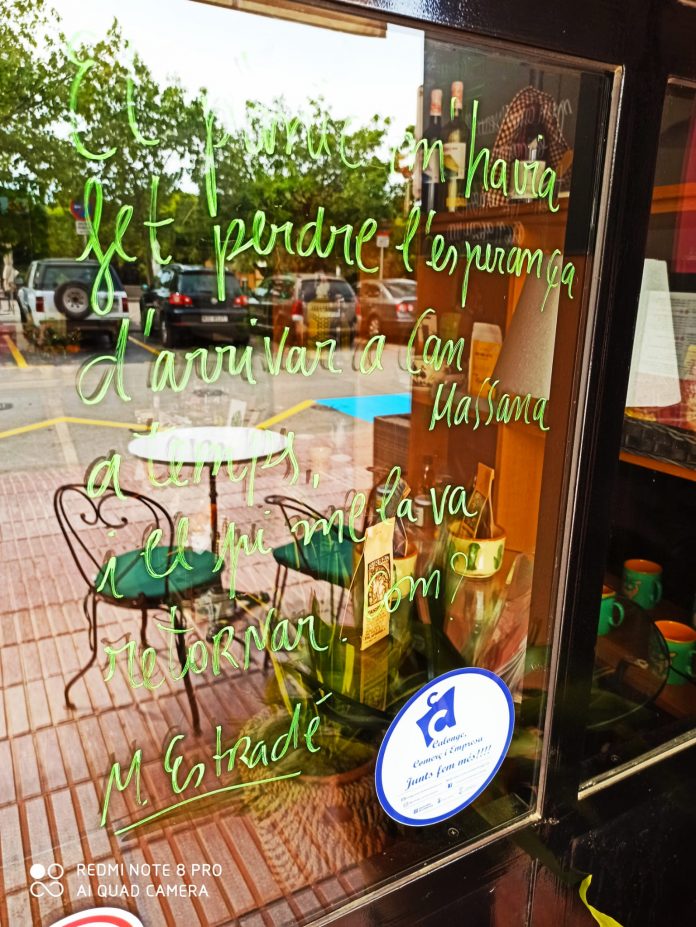 El pànic em'havia
fet perdre l'esperança
d'arrivar a Can
Massana
a temps,
i el spi me la va
retornar. com?
M. Estradé
Calonge,
Comerç i Empresa
Junts fem més!!!!
REDMI NOTE 8 PRO
AI QUAD CAMERA